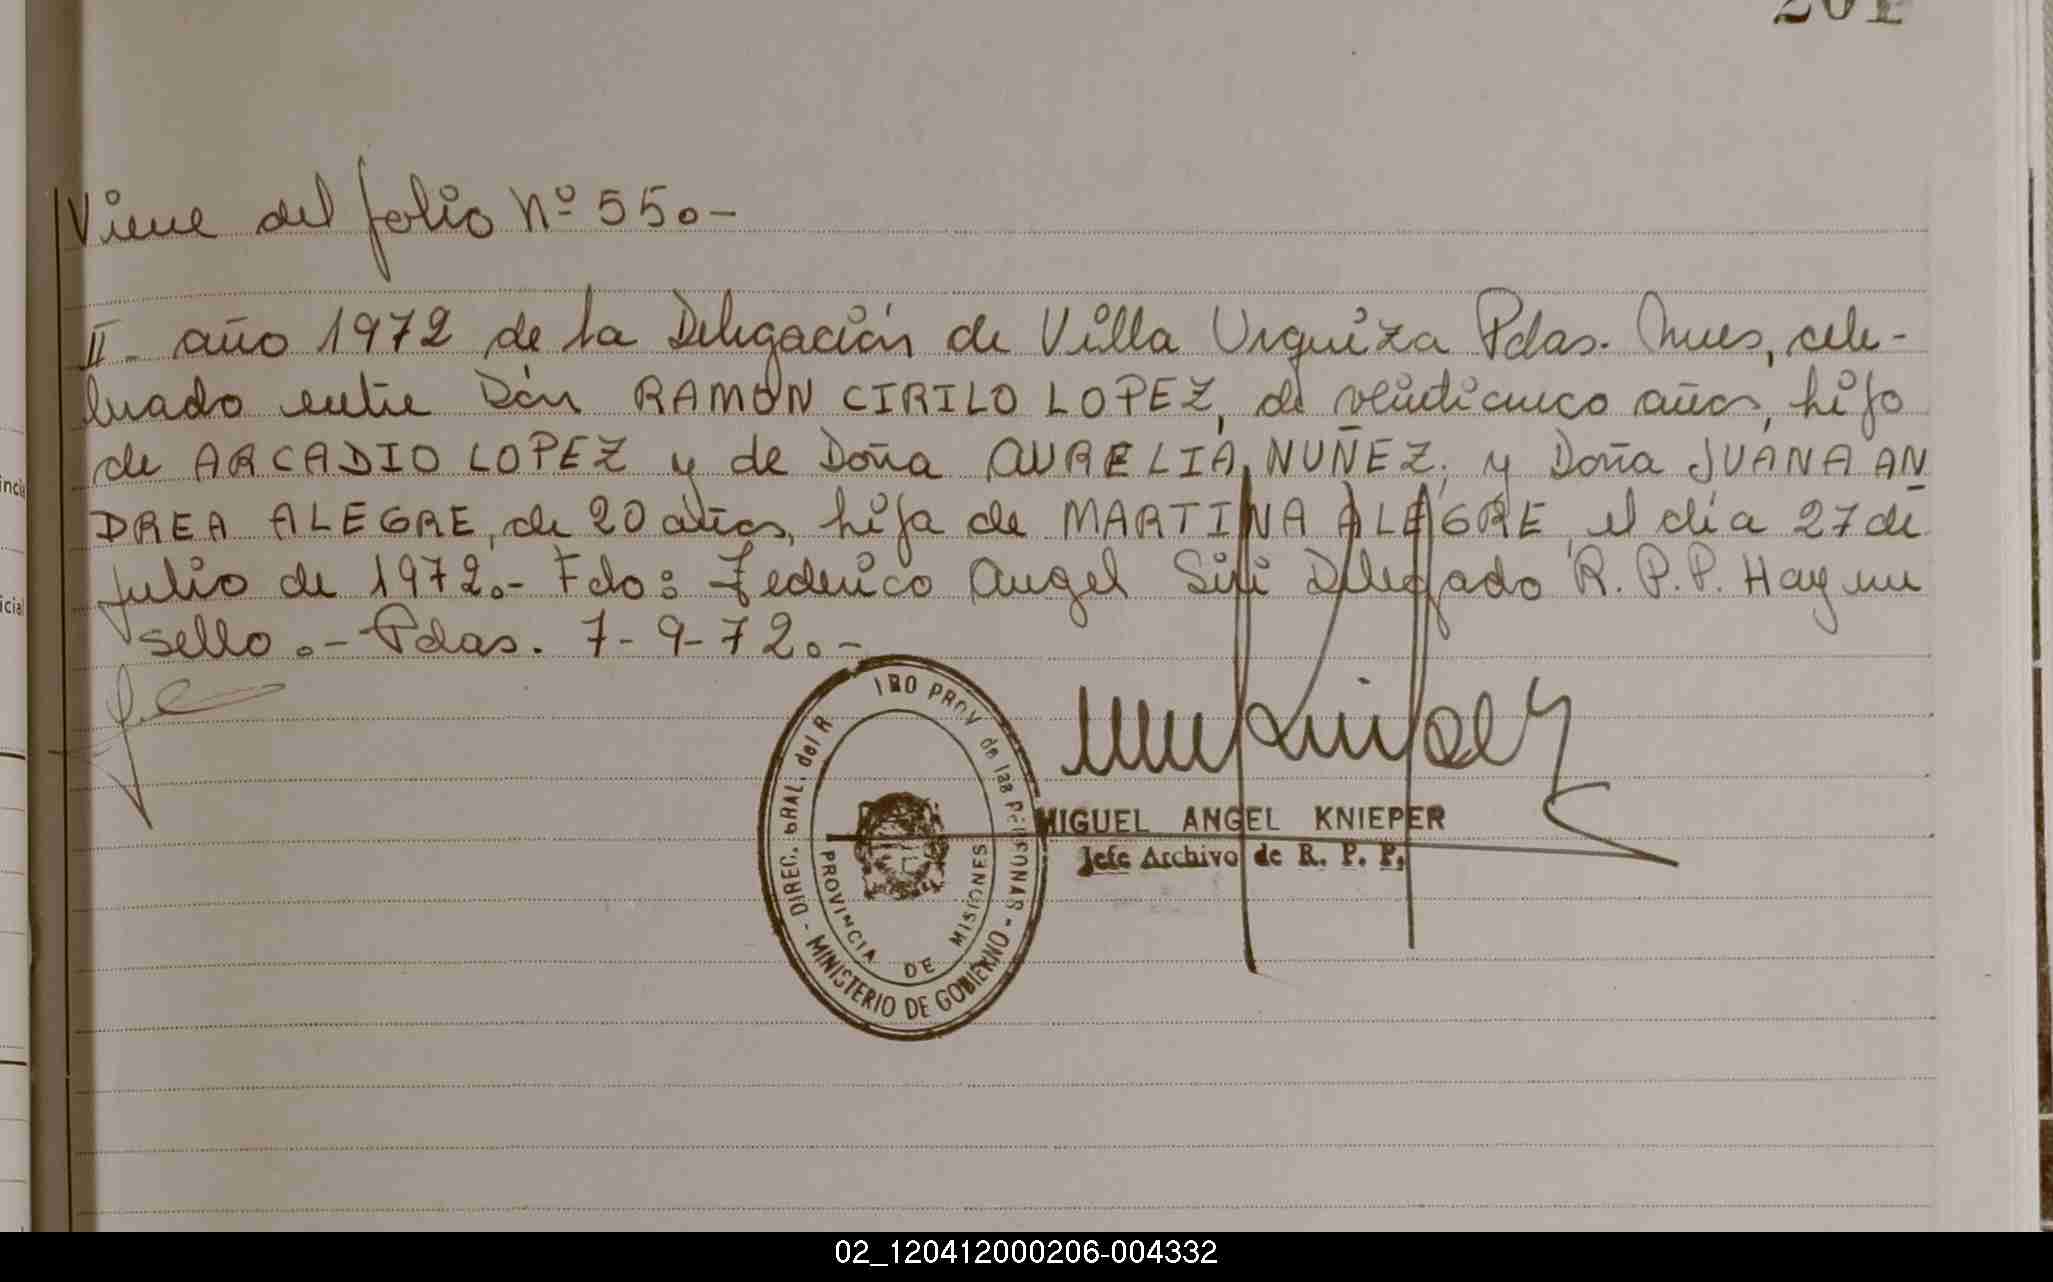 201
Viene del folio Nº 550-
II - año 1972 de la Delegación de Villa Urquiza Pdas. Mnes, cele-
brado entre Dón RAMON CIRILO LOPEZ, de veindicinco años, hijo
de ARCADIO LOPEZ y de Doña AURELIA NUÑEZ. y Doña JUANA AN
DREA ALEGRE, de 20 años, hija de MARTINA ALEGRE el día 27 de
julio de 1972.- Fdo: Federico Angel Siri Delegado R.P.P. Hay un
sello.- Pdas. 7-9-72.-
DIREC. GRAL. del R PROV de las PERSONAS - MINISTERIO DE GOBIERNO -
PROVINCIA DE MISIONES
MIGUEL ANGEL KNIEPER
Jefe Archivo de R. P. P.
02_120412000206-004332